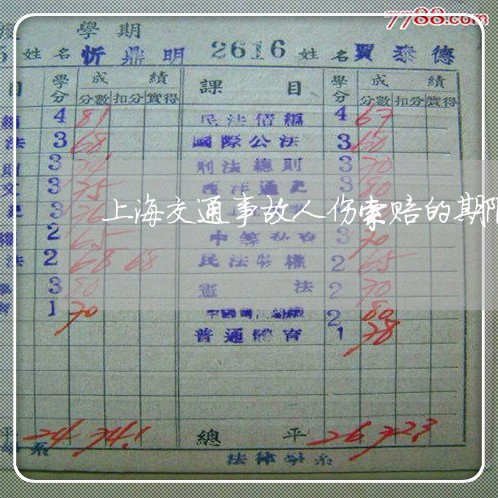 7788.com
學期
姓名 忻鼎明 2616 姓名 賈泰德
目 學分 成績 課目 學分 成績
分數 扣分 實得 分數 扣分 實得
4 81 民法債編 4 67
法 3 68 國際公法 3 60
3 刑法總則 3 70
3 75 通史 3 80
上海交通事故人伤索赔的期限
2 65 3 70
法 2 68 68 民法物權 2 65
3 80 憲法 2 70
1 70 2 80
普通體育 1 78
平 24 74.1 總平 26 72.3
系 法律學系